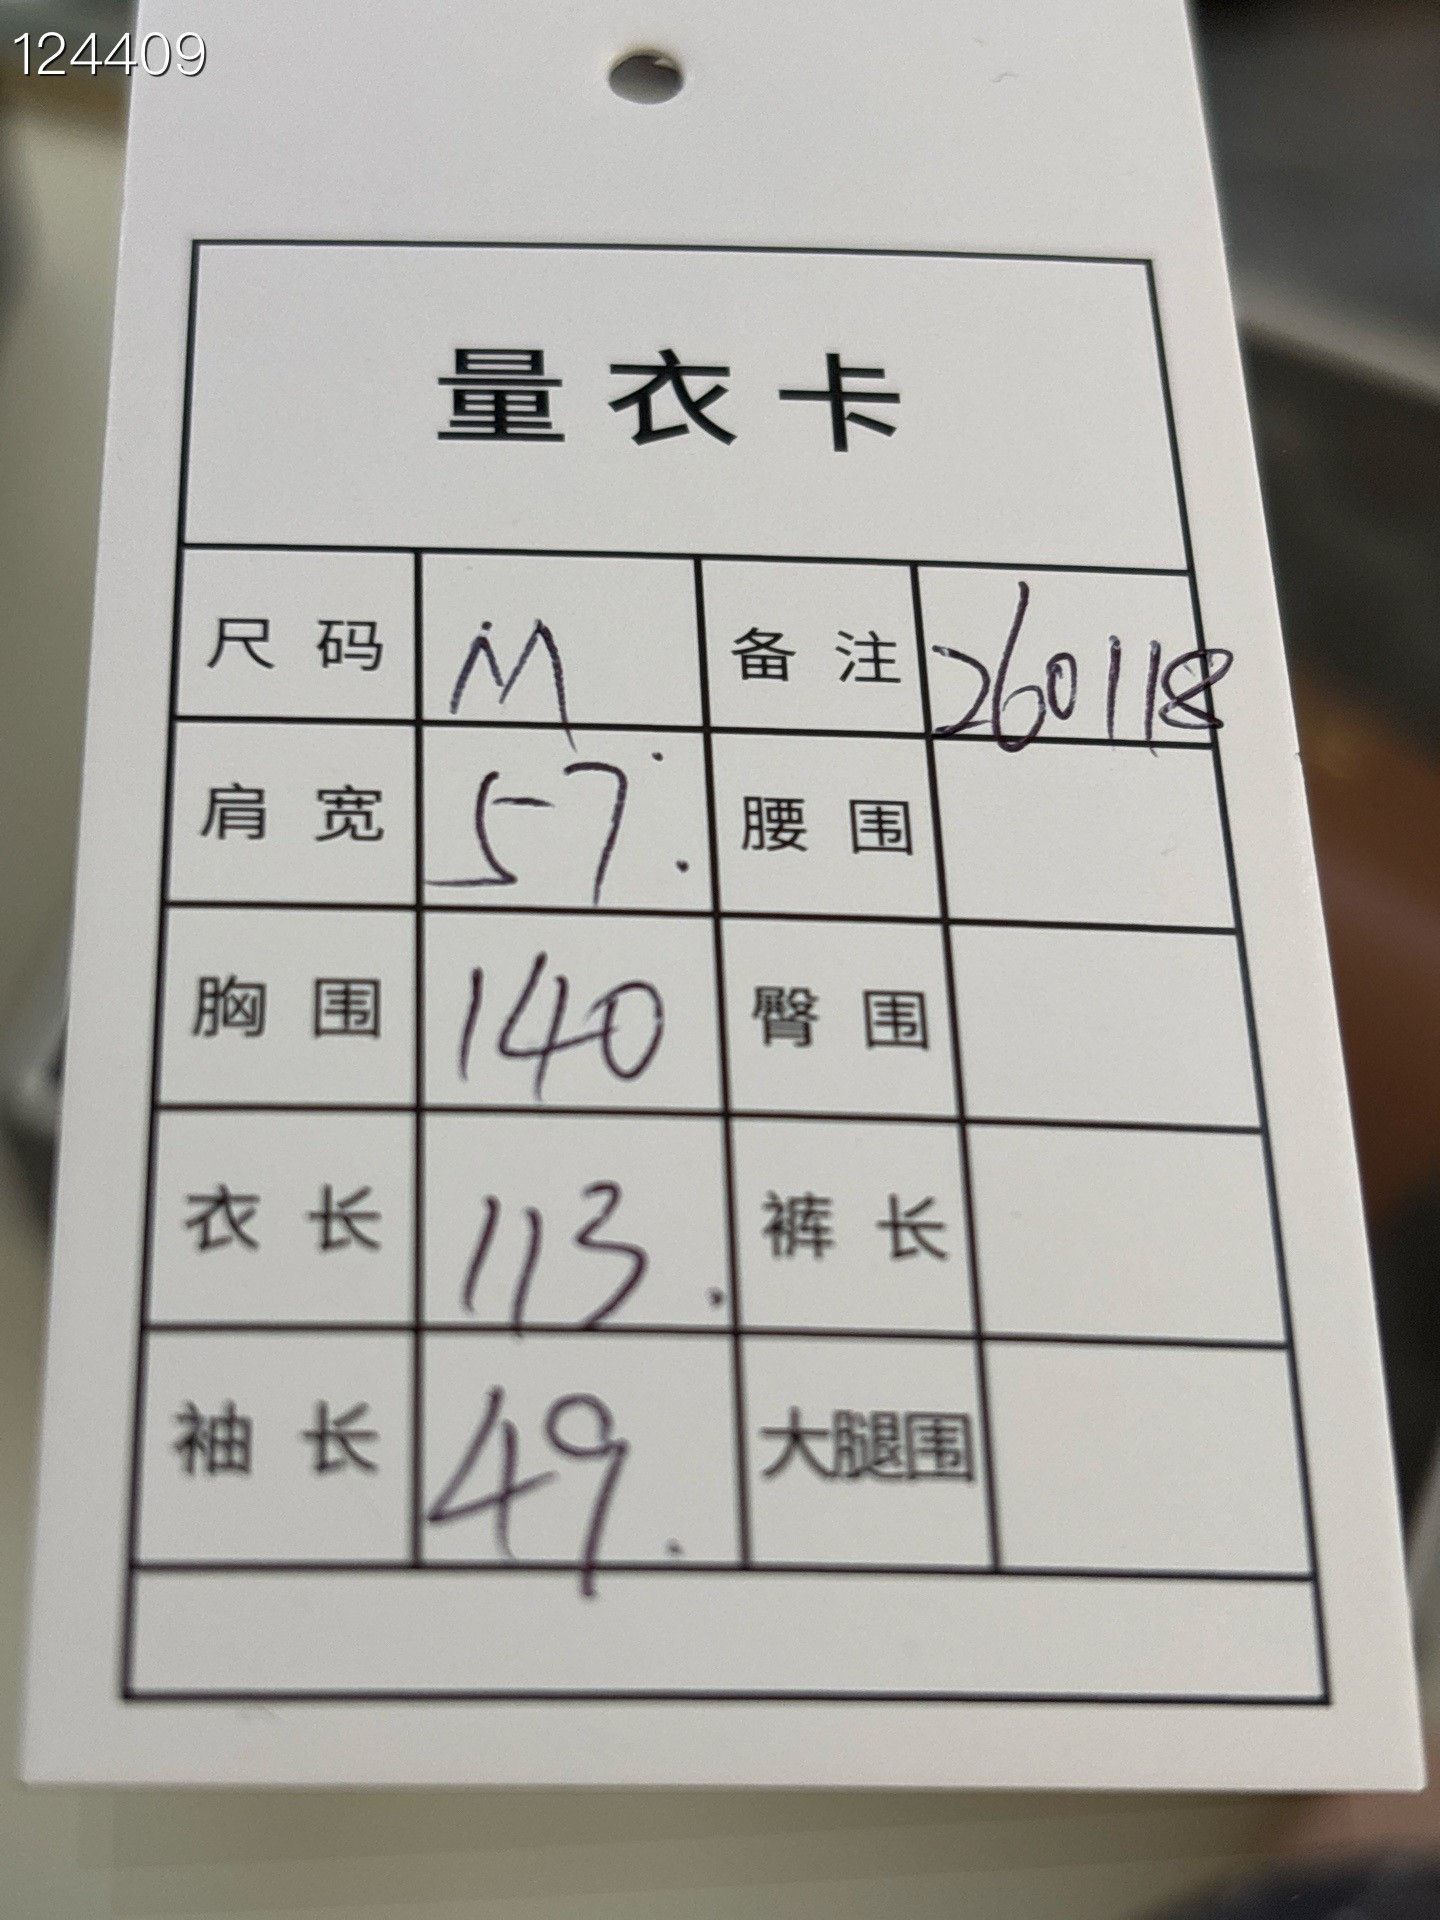 124409
量衣卡
尺码 M 备注 260118
肩宽 57. 腰围
胸围 140 臀围
衣长 113. 裤长
袖长 49. 大腿围